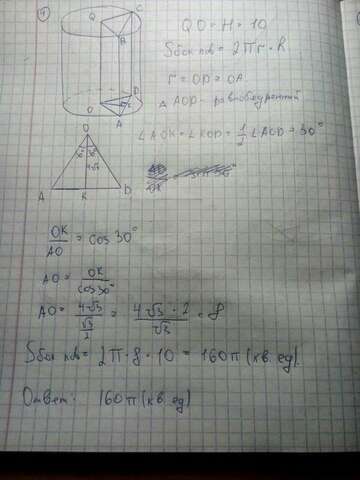 4
Q C
B
QO = H = 10
Sбок пов = 2πr · h
r = OD = OA
△ AOD - равнобедренный
O D
A
∠AOK = ∠KOD = 1/2 ∠AOD = 30°
O
30° 30°
4√3
A K D
OK/AO = cos 30°
AO = OK/cos 30°
AO = 4√3/(√3/2) = 4√3 · 2/√3 = 8
Sбок пов = 2π · 8 · 10 = 160π (кв. ед).
Ответ: 160π (кв. ед)